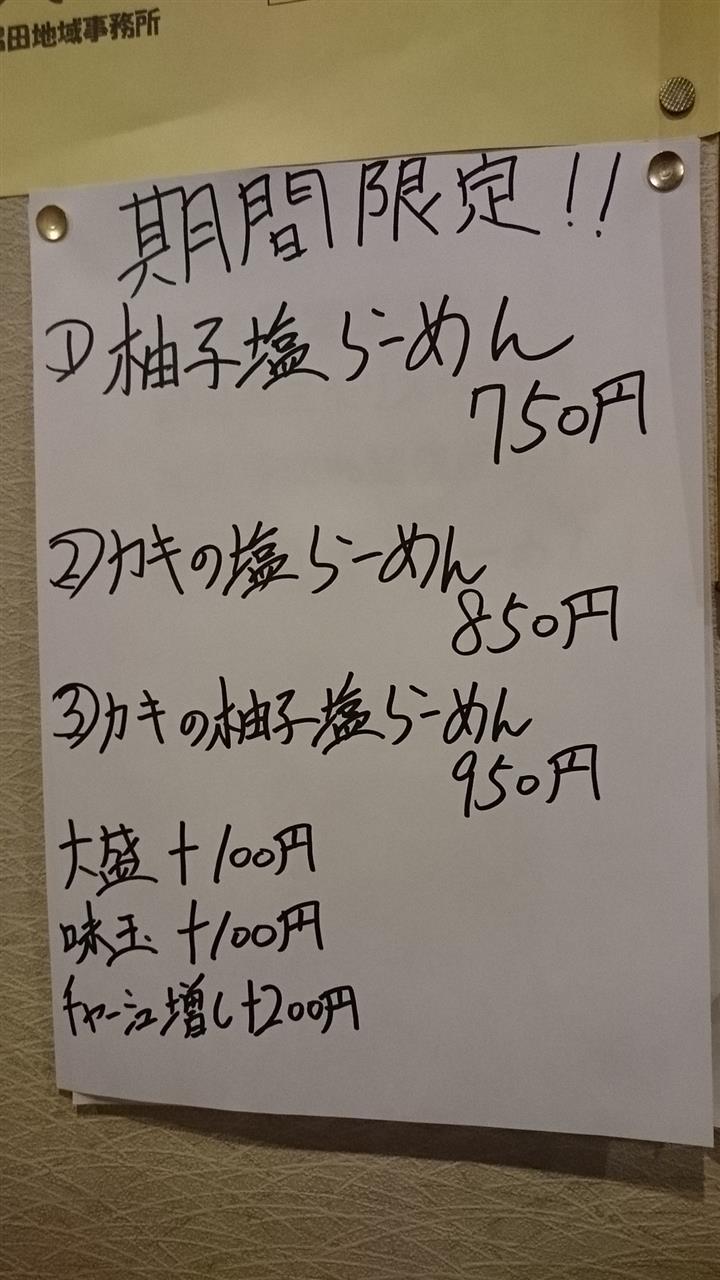 田地域事務所
期間限定!!
①柚子塩らーめん
750円
②カキの塩らーめん
850円
③カキの柚子塩らーめん
950円
大盛+100円
味玉+100円
チャーシュー増し+200円